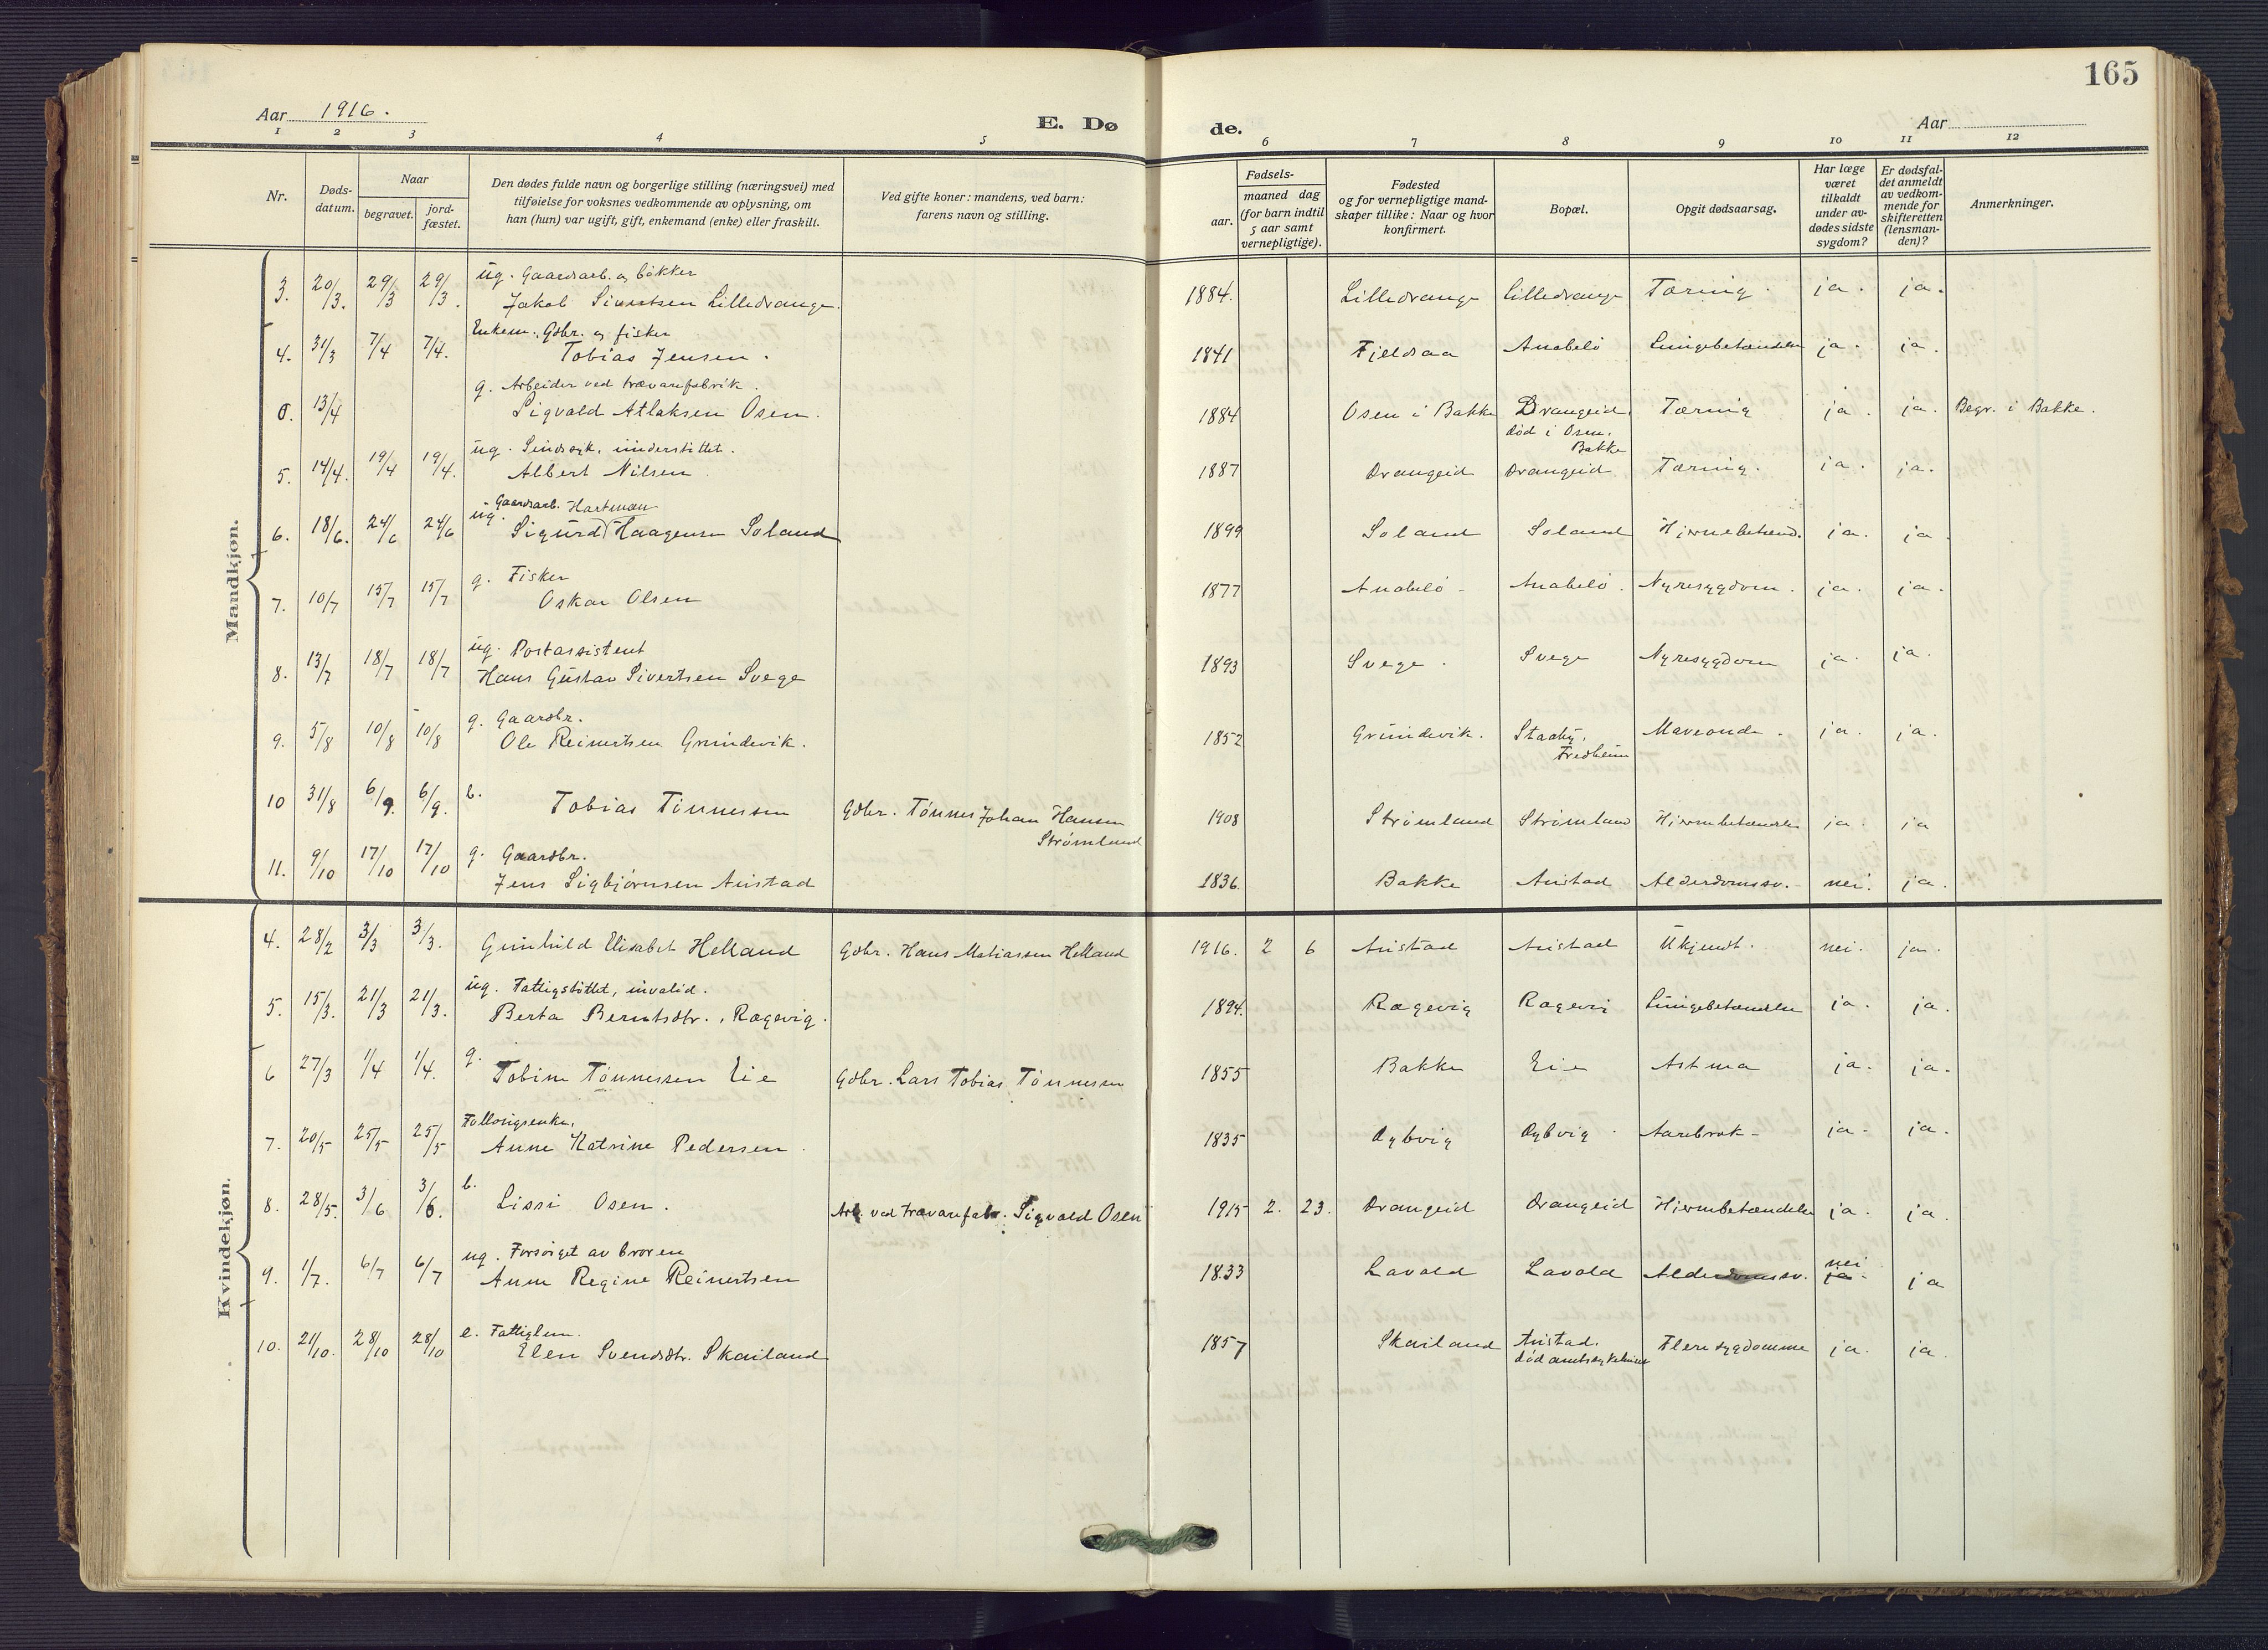 165
Aar 1916.
E. Dø
de.
Aar
1 2 3 4 5 6 7 8 9 10 11 12
Nr.
Døds-
datum.
Naar
begravet.
jord-
fæstet.
Den dødes fulde navn og borgerlige stilling (næringsvei) med
tilføielse for voksnes vedkommende av oplysning, om
han (hun) var ugift, gift, enkemand (enke) eller fraskilt.
Ved gifte koner: mandens, ved barn:
farens navn og stilling.
Fødsels-
aar.
maaned dag
(for barn indtil
5 aar samt
vernepligtige).
Fødested
og for vernepligtige mand-
skaper tillike: Naar og hvor
konfirmert.
Bopæl.
Opgit dødsaarsag.
Har læge
været
tilkaldt
under av-
dødes sidste
sygdom?
Er dødsfal-
det anmeldt
av vedkom-
mende for
skifteretten
(lensman-
den)?
Anmerkninger.
Mandkjøn.
ug. Gaardsarb. og bøkker
3. 20/3. 29/3 29/3. Jakob Sivertsen Lilledrange. 1884. Lilledrange Lilledrange Tæring. ja. ja.
Enkem. Gdbr. og fisker
4. 31/3 7/4 7/4. Tobias Jensen. 1841 Fjeldsaa Anabelø Lungebetændelse ja. ja.
g. Arbeider ved trævarefabrik.
0. 13/4 Sigvald Atlaksen Osen. 1884 Osen i Bakke Drangeid, Tæring ja. ja. Begr. i Bakke.
død i Osen,
Bakke
ug. Sindssyk, understøttet.
5. 14/4. 19/4 19/4. Albert Nilsen 1887 Drangeid Drangeid Tæring. ja. ja.
ug. Gaardsarb. Hartman
6. 18/6. 24/6 24/6 Sigurd Haagensen Soland 1899 Soland Soland Hjernebetænd. ja. ja
g. Fisker
7. 10/7 15/7 15/7 Oskar Olsen 1877 Anabelø Anabelø. Nyresygdom. ja. ja.
ug. Postassistent
8. 13/7 18/7 18/7 Hans Gustav Sivertsen Svege 1893 Svege. Svege Nyresygdom ja. ja.
g. Gaardbr.
9. 5/8 10/8 10/8 Ole Reinertsen Grundevik. 1852 Grundevik. Staaby, Maveonde. ja. ja.
Fredheim
10 31/8 6/9. 6/9. b. Tobias Tønnessen Gdbr. Tønnes Johan Hansen 1908 Strømland Strømland Hjernebetændelse ja. ja
Strømland
g. Gaardbr.
11. 9/10 17/10 17/10 Jens Sigbjørnsen Austad 1836. Bakke Austad Alderdomssv. nei. ja.
Kvindekjøn.
4. 28/2 3/3 3/3. Gunhild Elisabet Helland Gdbr. Hans Matiassen Helland 1916. 2 6 Austad Austad Ukjendt. nei. ja.
ug. Fattigstøttet, invalid.
5. 15/3. 21/3 21/3. Berta Berntsdtr., Rægevig. 1894. Rægevig Rægevig Lungebetændelse ja. ja.
6 27/3 1/4 1/4. g. Tobine Tønnessen Eie Gdbr. Lars Tobias Tønnessen 1855 Bakke Eie Astma ja. ja.
Føllougsenke,
7. 20/5 25/5 25/5 Anne Katrine Pedersen. 1835 Dybvig Dybvig. Aarebrok ja. ja.
8. 28/5. 3/6 3/6. b. Lissi Osen. Arb. ved trævarefabr. Sigvald Osen 1915 2. 23. Drangeid Drangeid Hjernebetændelse ja. ja.
ug. Forsørget av broren
9. 1/7. 6/7 6/7 Anne Regine Reinertsen 1833 Lavold Lavold Alderdomssv. nei ja. ja
e. Fattiglem.
10. 21/10. 28/10 28/10 Elen Svendsdtr. Skailand 1857 Skailand Austad. Flere sygdomme ja. ja.
død amtssykehuset